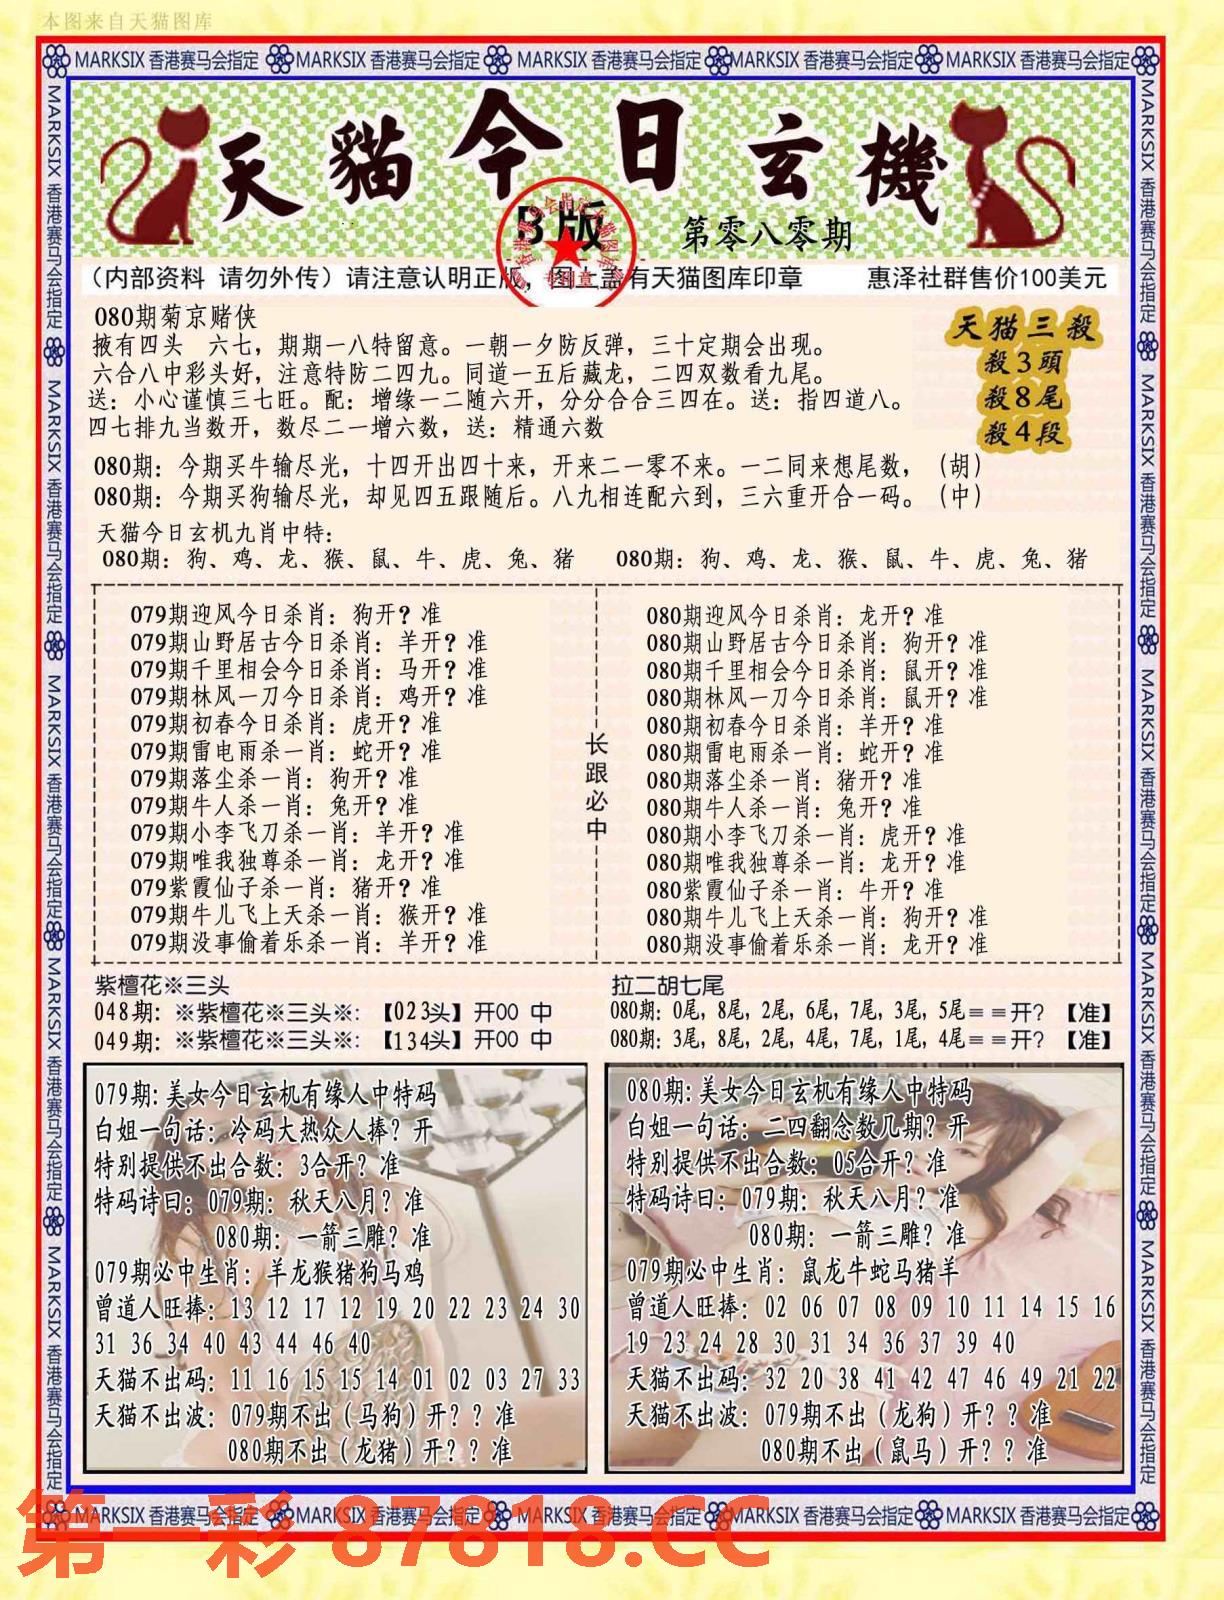 本图来自天猫图库
MARKSIX 香港赛马会指定 MARKSIX 香港赛马会指定 MARKSIX 香港赛马会指定 MARKSIX 香港赛马会指定 MARKSIX 香港赛马会指定
天貓今日玄機
B版
第零八零期
（内部资料 请勿外传）请注意认明正版，图上盖有天猫图库印章
惠泽社群售价100美元
080期菊京赌侠
掖有四头 六七，期期一八特留意。一朝一夕防反弹，三十定期会出现。
六合八中彩头好，注意特防二四九。同道一五后藏龙，二四双数看九尾。
送：小心谨慎三七旺。配：增缘一二随六开，分分合合三四在。送：指四道八。
四七排九当数开，数尽二一增六数，送：精通六数
天猫三殺
殺3頭
殺8尾
殺4段
080期：今期买牛输尽光，十四开出四十来，开来二一零不来。一二同来想尾数，（胡）
080期：今期买狗输尽光，却见四五跟随后。八九相连配六到，三六重开合一码。（中）
天猫今日玄机九肖中特：
080期：狗、鸡、龙、猴、鼠、牛、虎、兔、猪
080期：狗、鸡、龙、猴、鼠、牛、虎、兔、猪
079期迎风今日杀肖：狗开？准
079期山野居古今日杀肖：羊开？准
079期千里相会今日杀肖：马开？准
079期林风一刀今日杀肖：鸡开？准
079期初春今日杀肖：虎开？准
079期雷电雨杀一肖：蛇开？准
079期落尘杀一肖：狗开？准
079期牛人杀一肖：兔开？准
079期小李飞刀杀一肖：羊开？准
079期唯我独尊杀一肖：龙开？准
079紫霞仙子杀一肖：猪开？准
079期牛儿飞上天杀一肖：猴开？准
079期没事偷着乐杀一肖：羊开？准
长跟必中
080期迎风今日杀肖：龙开？准
080期山野居古今日杀肖：狗开？准
080期千里相会今日杀肖：鼠开？准
080期林风一刀今日杀肖：鼠开？准
080期初春今日杀肖：羊开？准
080期雷电雨杀一肖：蛇开？准
080期落尘杀一肖：猪开？准
080期牛人杀一肖：兔开？准
080期小李飞刀杀一肖：虎开？准
080期唯我独尊杀一肖：龙开？准
080紫霞仙子杀一肖：牛开？准
080期牛儿飞上天杀一肖：狗开？准
080期没事偷着乐杀一肖：龙开？准
紫檀花※三头
048期：※紫檀花※三头※:【023头】开00 中
049期：※紫檀花※三头※:【134头】开00 中
拉二胡七尾
080期：0尾，8尾，2尾，6尾，7尾，3尾，5尾＝＝开？【准】
080期：3尾，8尾，2尾，4尾，7尾，1尾，4尾＝＝开？【准】
079期：美女今日玄机有缘人中特码
白姐一句话：冷码大热众人捧？开
特别提供不出合数：3合开？准
特码诗曰：079期：秋天八月？准
080期：一箭三雕？准
079期必中生肖：羊龙猴猪狗马鸡
曾道人旺捧：13 12 17 12 19 20 22 23 24 30
31 36 34 40 43 44 46 40
天猫不出码：11 16 15 15 14 01 02 03 27 33
天猫不出波：079期不出（马狗）开？？准
080期不出（龙猪）开？？准
080期：美女今日玄机有缘人中特码
白姐一句话：二四翻念数几期？开
特别提供不出合数：05合开？准
特码诗曰：079期：秋天八月？准
080期：一箭三雕？准
079期必中生肖：鼠龙牛蛇马猪羊
曾道人旺捧：02 06 07 08 09 10 11 14 15 16
19 23 24 28 30 31 34 36 37 39 40
天猫不出码：32 20 38 41 42 47 46 49 21 22
天猫不出波：079期不出（龙狗）开？？准
080期不出（鼠马）开？？准
MARKSIX 香港赛马会指定 MARKSIX 香港赛马会指定 MARKSIX 香港赛马会指定 MARKSIX 香港赛马会指定 MARKSIX 香港赛马会指定
MARKSIX 香港赛马会指定 MARKSIX 香港赛马会指定 MARKSIX 香港赛马会指定 MARKSIX 香港赛马会指定 MARKSIX 香港赛马会指定
MARKSIX 香港赛马会指定 MARKSIX 香港赛马会指定 MARKSIX 香港赛马会指定 MARKSIX 香港赛马会指定 MARKSIX 香港赛马会指定
第一彩 87818.CC